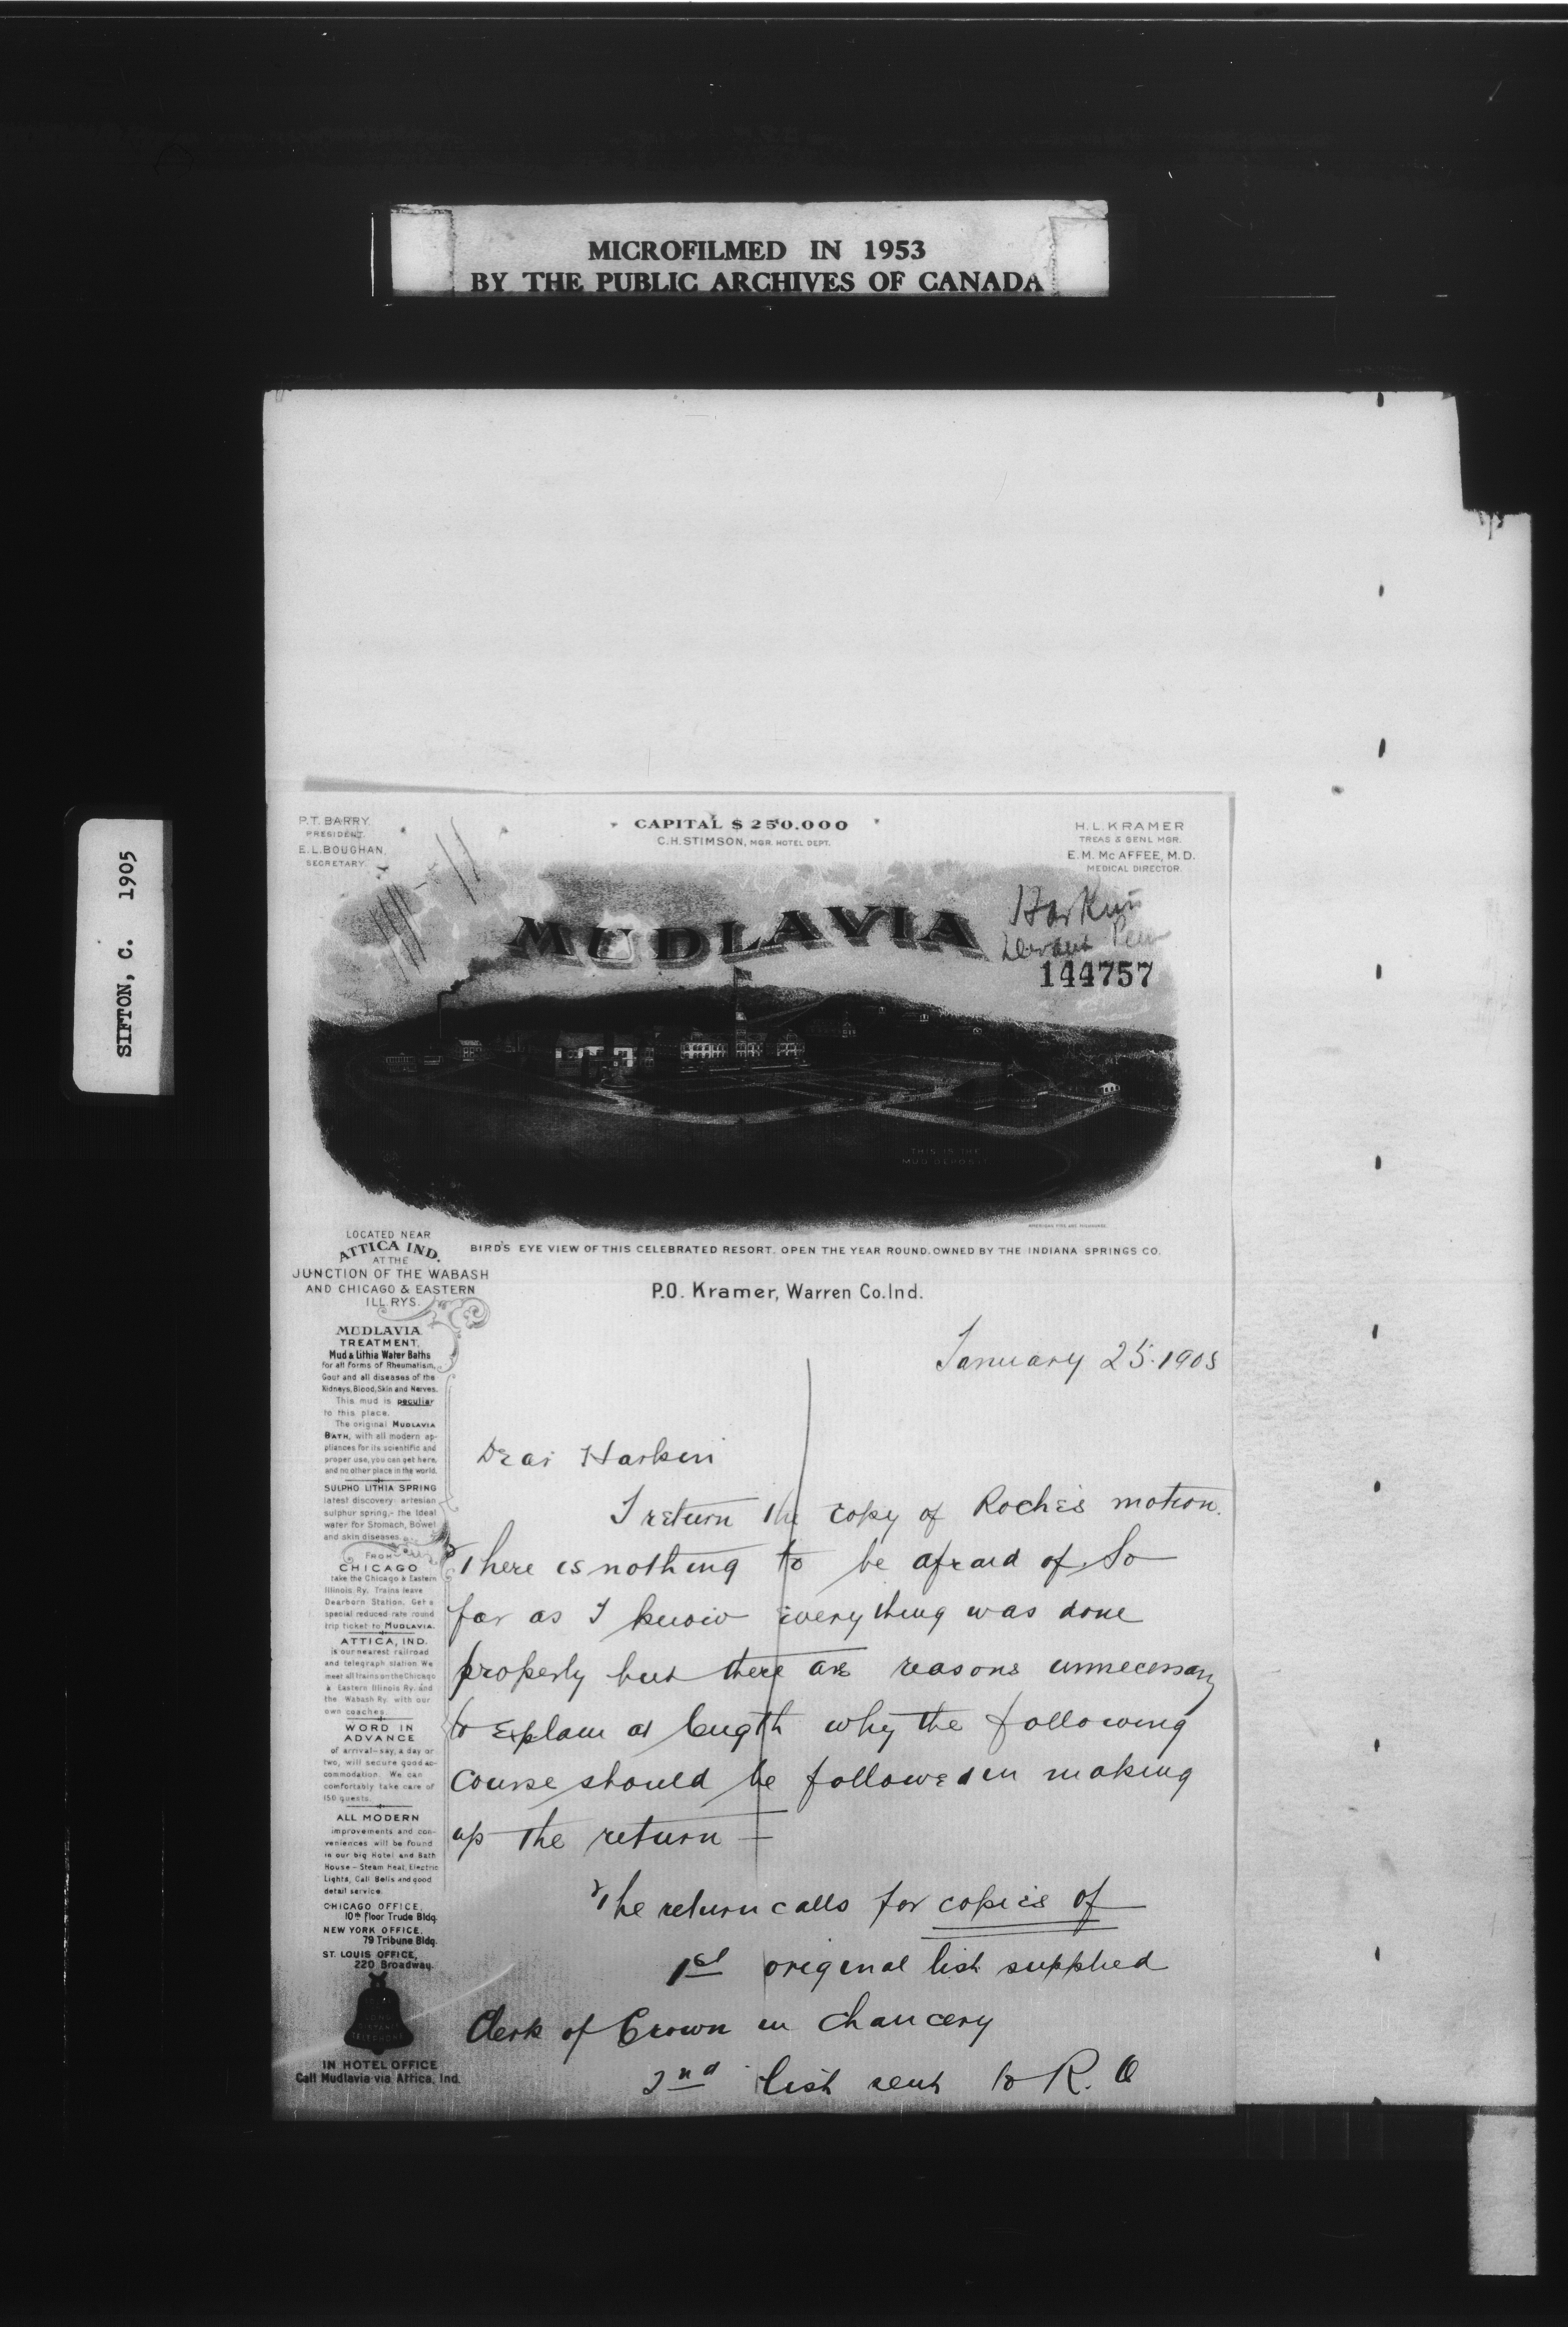 MICROFILMED IN 1953
BY THE PUBLIC ARCHIVES OF CANADA
SIFTON, C. 1905
P.T. BARRY.
PRESIDENT.
E.L. BOUGHAN,
SECRETARY.
CAPITAL $ 250.000
C.H. STIMSON, MGR. HOTEL DEPT.
H. L. KRAMER
TREAS & GENL MGR.
E. M. McAFFEE, M.D.
MEDICAL DIRECTOR.
MUDLAVIA
Harkin
144757
THIS IS THE
MUD DEPOSIT
LOCATED NEAR
ATTICA IND.
AT THE
JUNCTION OF THE WABASH
AND CHICAGO & EASTERN
ILL. RYS.
BIRD'S EYE VIEW OF THIS CELEBRATED RESORT. OPEN THE YEAR ROUND. OWNED BY THE INDIANA SPRINGS CO.
P.O. Kramer, Warren Co. Ind.
MUDLAVIA
TREATMENT,
Mud & Lithia Water Baths
for all forms of Rheumatism,
Gout and all diseases of the
Kidneys, Blood, Skin and Nerves.
This mud is peculiar
to this place.
The original MUDLAVIA
BATH, with all modern ap-
pliances for its scientific and
proper use, you can get here,
and no other place in the world.
SULPHO LITHIA SPRING
latest discovery artesian
sulphur spring,- the Ideal
water for Stomach, Bowel
and skin diseases.
FROM
CHICAGO
take the Chicago & Eastern
Illinois Ry. Trains leave
Dearborn Station. Get a
special reduced rate round
trip ticket to MUDLAVIA.
ATTICA, IND.
is our nearest railroad
and telegraph station We
meet all trains on the Chicago
& Eastern Illinois Ry. and
the Wabash Ry. with our
own coaches.
WORD IN
ADVANCE
of arrival-say, a day or
two, will secure good ac-
commodation. We can
comfortably take care of
150 guests.
ALL MODERN
improvements and con-
veniences will be found
in our big Hotel and Bath
House - Steam Heat, Electric
Lights, Call Bells and good
detail service.
CHICAGO OFFICE,
10th floor Trude Bldg.
NEW YORK OFFICE,
79 Tribune Bldg.
ST. LOUIS OFFICE,
220 Broadway.
LONG
DISTANCE
TELEPHONE
IN HOTEL OFFICE
Call Mudlavia via Attica, Ind.
January 25. 1905
Dear Harkin
I return the copy of Roche's motion.
There is nothing to be afraid of. So
far as I know everything was done
properly but there are reasons unnecessary
to explain at length why the following
course should be followed in making
up the return —
The return calls for copies of
1st original list supplied
Clerk of Crown in Chancery
2nd list sent to R. O